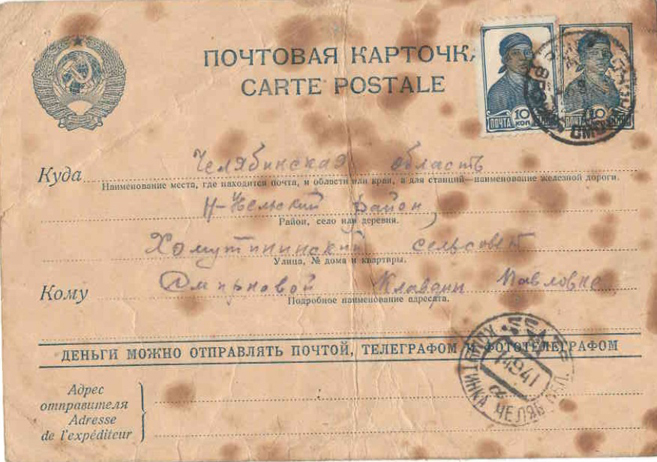 ПОЧТОВАЯ КАРТОЧКА
CARTE POSTALE
ПОЧТА 10 КОП
ПОЧТА 10 КОП
Куда Челябинская область
Наименование места, где находится почта, и области или края, а для станций—наименование железной дороги.
район
Район, село или деревня.
Хомутининский сельсовет
Улица, № дома и квартиры.
Кому Смирновой Клавдии Павловне
Подробное наименование адресата.
ДЕНЬГИ МОЖНО ОТПРАВЛЯТЬ ПОЧТОЙ, ТЕЛЕГРАФОМ И ФОТОТЕЛЕГРАФОМ
ЧЕЛЯБ
Адрес
отправителя
Adresse
de l'expéditeur